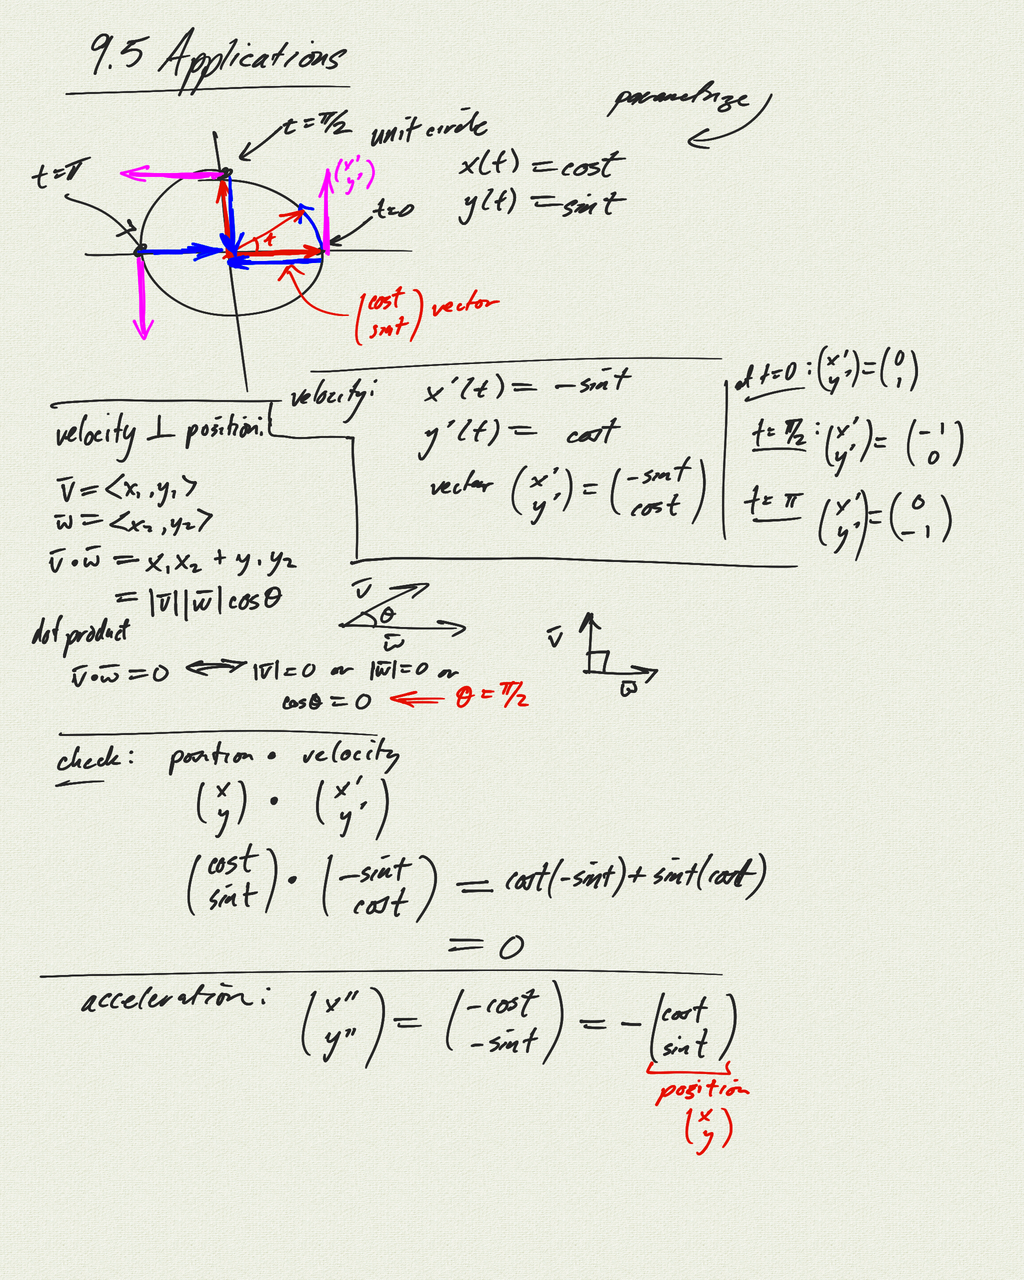 9.5 Applications
parametrize
t=π/2
unit circle
x(t) = cost
y(t) = sint
t=π
(x' y')
t=0
t
(cost sint) vector
velocity:
x'(t) = -sint
y'(t) = cost
vector (x' y') = (-sint cost)
at t=0: (x' y') = (0 1)
t=π/2: (x' y') = (-1 0)
t=π (x' y') = (0 -1)
velocity ⊥ position:
v̄ = <x₁, y₁>
w̄ = <x₂, y₂>
v̄·w̄ = x₁x₂ + y₁y₂
= |v̄||w̄|cosθ
dot product
v̄
θ
w̄
v̄
w̄
v̄·w̄ = 0 ⟺ |v̄|=0 or |w̄|=0 or
cosθ = 0 ⟸ θ = π/2
check: position · velocity
(x y) · (x' y')
(cost sint) · (-sint cost) = cost(-sint)+sint(cost)
= 0
acceleration: (x'' y'') = (-cost -sint) = -(cost sint)
position
(x y)